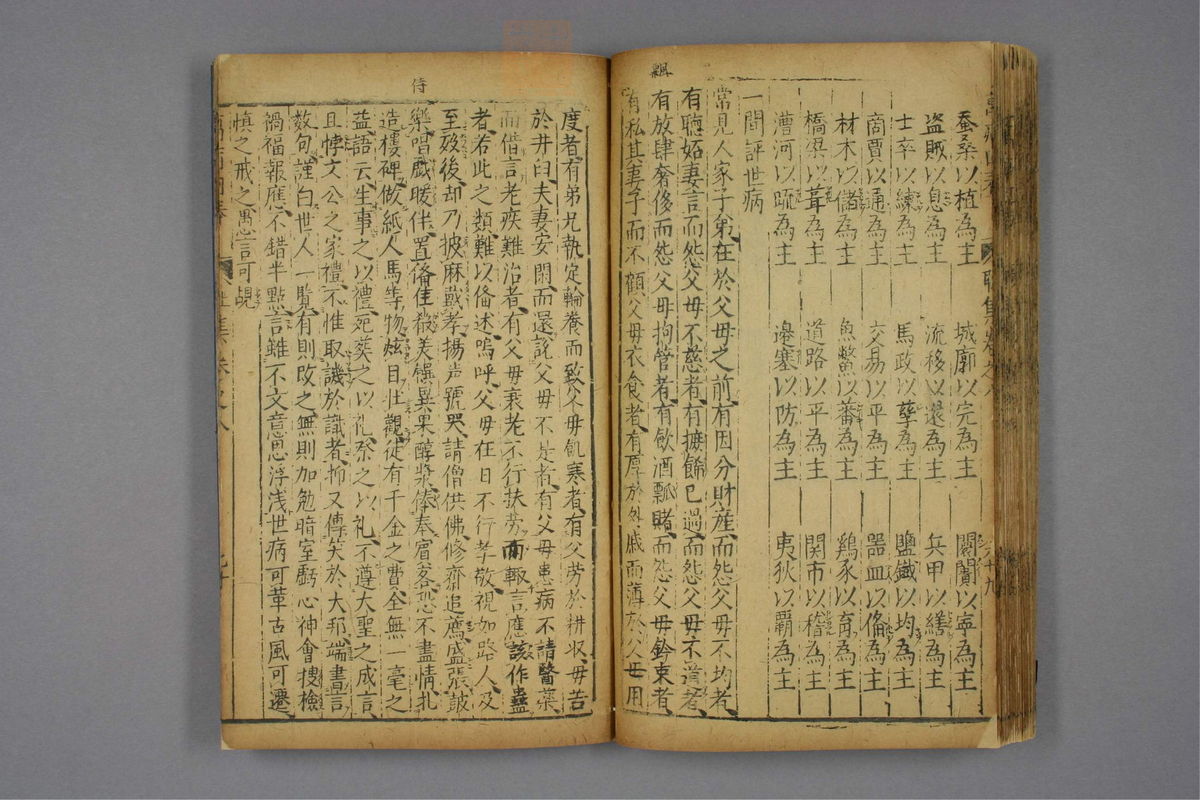 蚕桑以植為主　城廓以完為主　闤闠以寧為主
盗賊以息為主　流移以還為主　兵甲以繕為主
士卒以練為主　馬政以孳為主　鹽鐵以均為主
商賈以通為主　交易以平為主　器皿以俻為主
材木以儲為主　魚鱉以蕃為主　鷄豕以育為主
橋梁以葺為主　道路以平為主　関市以稽為主
漕河以疏為主　邊塞以防為主　夷狄以覇為主
一閒評世病
常見人家子弟在於父母之前有因分財産而怨父母不均者
有聴妬妻言而怨父母不慈者有摭餙已過而怨父母不
有放肆奢侈而怨父母拘管者有飲酒瓢賭而怨父母鈐束者
有私其妻子而不顧父母衣食者有厚於外戚而薄於父母用
飄
侍
度者有弟兄執定輪養而致父母飢寒者有父劳於耕収母苦
於井臼夫妻安閑而還說父母不是者有父母患病不請醫藥
而借言老疾難治者有父母衰老不行扶劳而輙言應該作蠱
者若此之類難以俻述嗚呼父母在日不行孝敬視如路人及
至歿後却乃披麻戴孝揚声號哭請僧供佛修齋追薦盛張皷
樂唱戯暖伴置俻佳殽美饌異果醇漿俸奉賓客恐不盡情扎
造樓碑做紙人馬等物炫目壮觀徒有千金之費全無一毫之
益語云生事之以禮死葬之以礼祭之以礼不遵大聖之成言
且悖文公之家禮不惟取譏於識者抑又傳笑於大邦端書言
数句謹白世人一覧有則改之無則加勉暗室虧心神會搜檢
禍福報應不錯半點言雖不文意思浮浅世病可革古風可還
慎之戒之愚言可覘